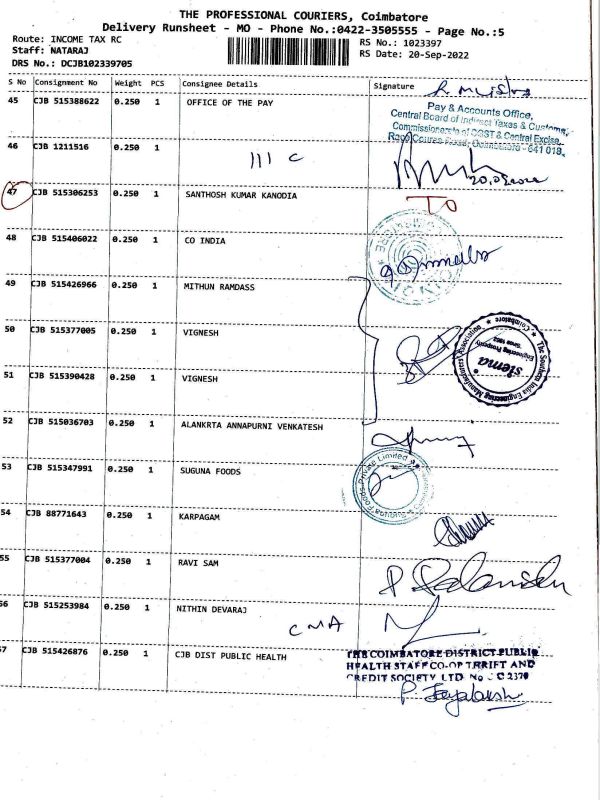 THE PROFESSIONAL COURIERS, Coimbatore
Delivery Runsheet - MO - Phone No.:0422-3505555 - Page No.:5
Route: INCOME TAX RC
Staff: NATARAJ
DRS No.: DCJB102339705
RS No.: 1023397
RS Date: 20-Sep-2022
S No Consignment No Weight PCS Consignee Details Signature
45 CJB 515388622 0.250 1 OFFICE OF THE PAY
Pay & Accounts Office,
Central Board of Indirect Taxes & Customs,
Commissionerate of CGST & Central Excise,
Race Course Road, Coimbatore - 641 018.
46 CJB 1211516 0.250 1
111 C
47 CJB 515306253 0.250 1 SANTHOSH KUMAR KANODIA
TO
48 CJB 515406022 0.250 1 CO INDIA
49 CJB 515426966 0.250 1 MITHUN RAMDASS
50 CJB 515377005 0.250 1 VIGNESH
The Southern India Engineering Manufacturers' Association
Coimbatore
siema
Engineering Prosperity
Since 1952
51 CJB 515390428 0.250 1 VIGNESH
52 CJB 515036703 0.250 1 ALANKRTA ANNAPURNI VENKATESH
53 CJB 515347991 0.250 1 SUGUNA FOODS
Suguna Foods Private Limited
54 CJB 88771643 0.250 1 KARPAGAM
55 CJB 515377004 0.250 1 RAVI SAM
56 CJB 515253984 0.250 1 NITHIN DEVARAJ
CMA
57 CJB 515426876 0.250 1 CJB DIST PUBLIC HEALTH
THE COIMBATORE DISTRICT PUBLIC
HEALTH STAFF CO-OP THRIFT AND
CREDIT SOCIETY LTD No : C 2370